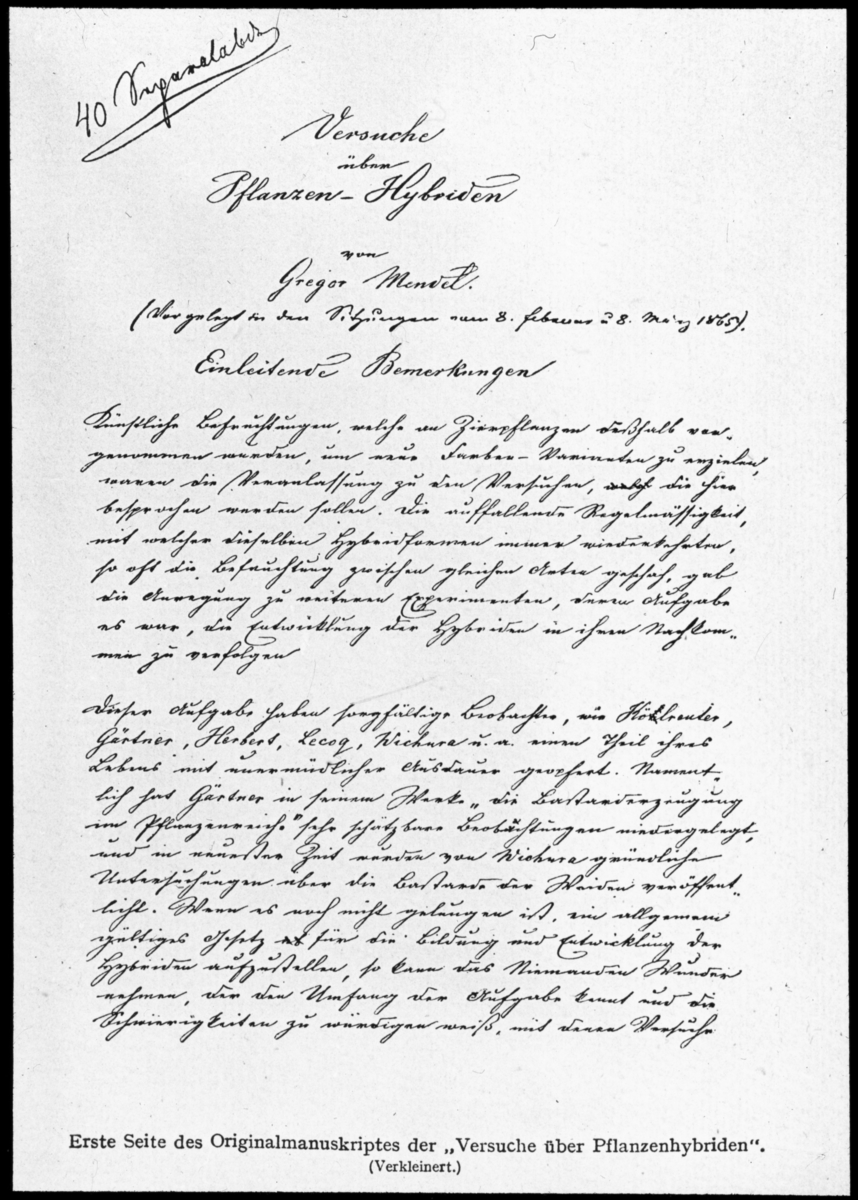 40 Separatabdr
Versuche
über
Pflanzen-Hybriden
von
Gregor Mendel.
(Vorgelegt in den Sitzungen vom 8. Februar u 8. März 1865).
Einleitende Bemerkungen
Künstliche Befruchtungen, welche an Zierpflanzen deßhalb vor-
genommen wurden, um neue Farben-Varianten zu erzielen,
waren die Veranlassung zu den Versuchen, die hier
besprochen werden sollen. Die auffallende Regelmässigkeit,
mit welcher dieselben Hybridformen immer wiederkehrten,
so oft die Befruchtung zwischen gleichen Arten geschah, gab
die Anregung zu weiteren Experimenten, deren Aufgabe
es war, die Entwicklung der Hybriden in ihren Nachkom-
men zu verfolgen
Dieser Aufgabe haben sorgfältige Beobachter, wie Kölreuter,
Gärtner, Herbert, Lecoq, Wichura u. a. einen Theil ihres
Lebens mit unermüdlicher Ausdauer geopfert. Nament-
lich hat Gärtner in seinem Werke „die Bastarderzeugung
im Pflanzenreiche" sehr schätzbare Beobachtungen niedergelegt,
und in neuester Zeit wurden von Wichura gründliche
Untersuchungen über die Bastarde der Weiden veröffent-
licht. Wenn es noch nicht gelungen ist, ein allgemein
gültiges Gesetz für die Bildung und Entwicklung der
Hybriden aufzustellen, so kann das Niemanden Wunder
nehmen, der den Umfang der Aufgabe kennt und die
Schwierigkeiten zu würdigen weiß, mit denen Versuche
Erste Seite des Originalmanuskriptes der „Versuche über Pflanzenhybriden".
(Verkleinert.)